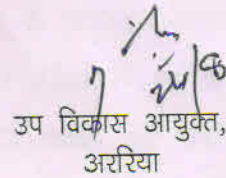 उप विकास आयुक्त,
अररिया